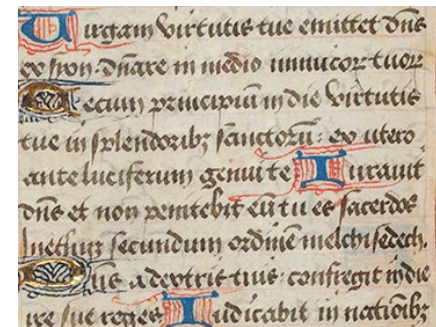 Uirgam virtutis tue emittet dn̄s
ex syon · dn̄are in medio inimicoꝝ tuoꝝ
Tecum principiū in die virtutis
tue in splendoribꝫ sanctorū : ex utero
ante luciferum genui te Iurauit
dn̄s et non penitebit eū tu es sacerdos
ineternū secundum ordinē melchisedech.
Dn̄s a dextris tuis · confregit in die
ire sue reges Iudicabit in nationibꝫ